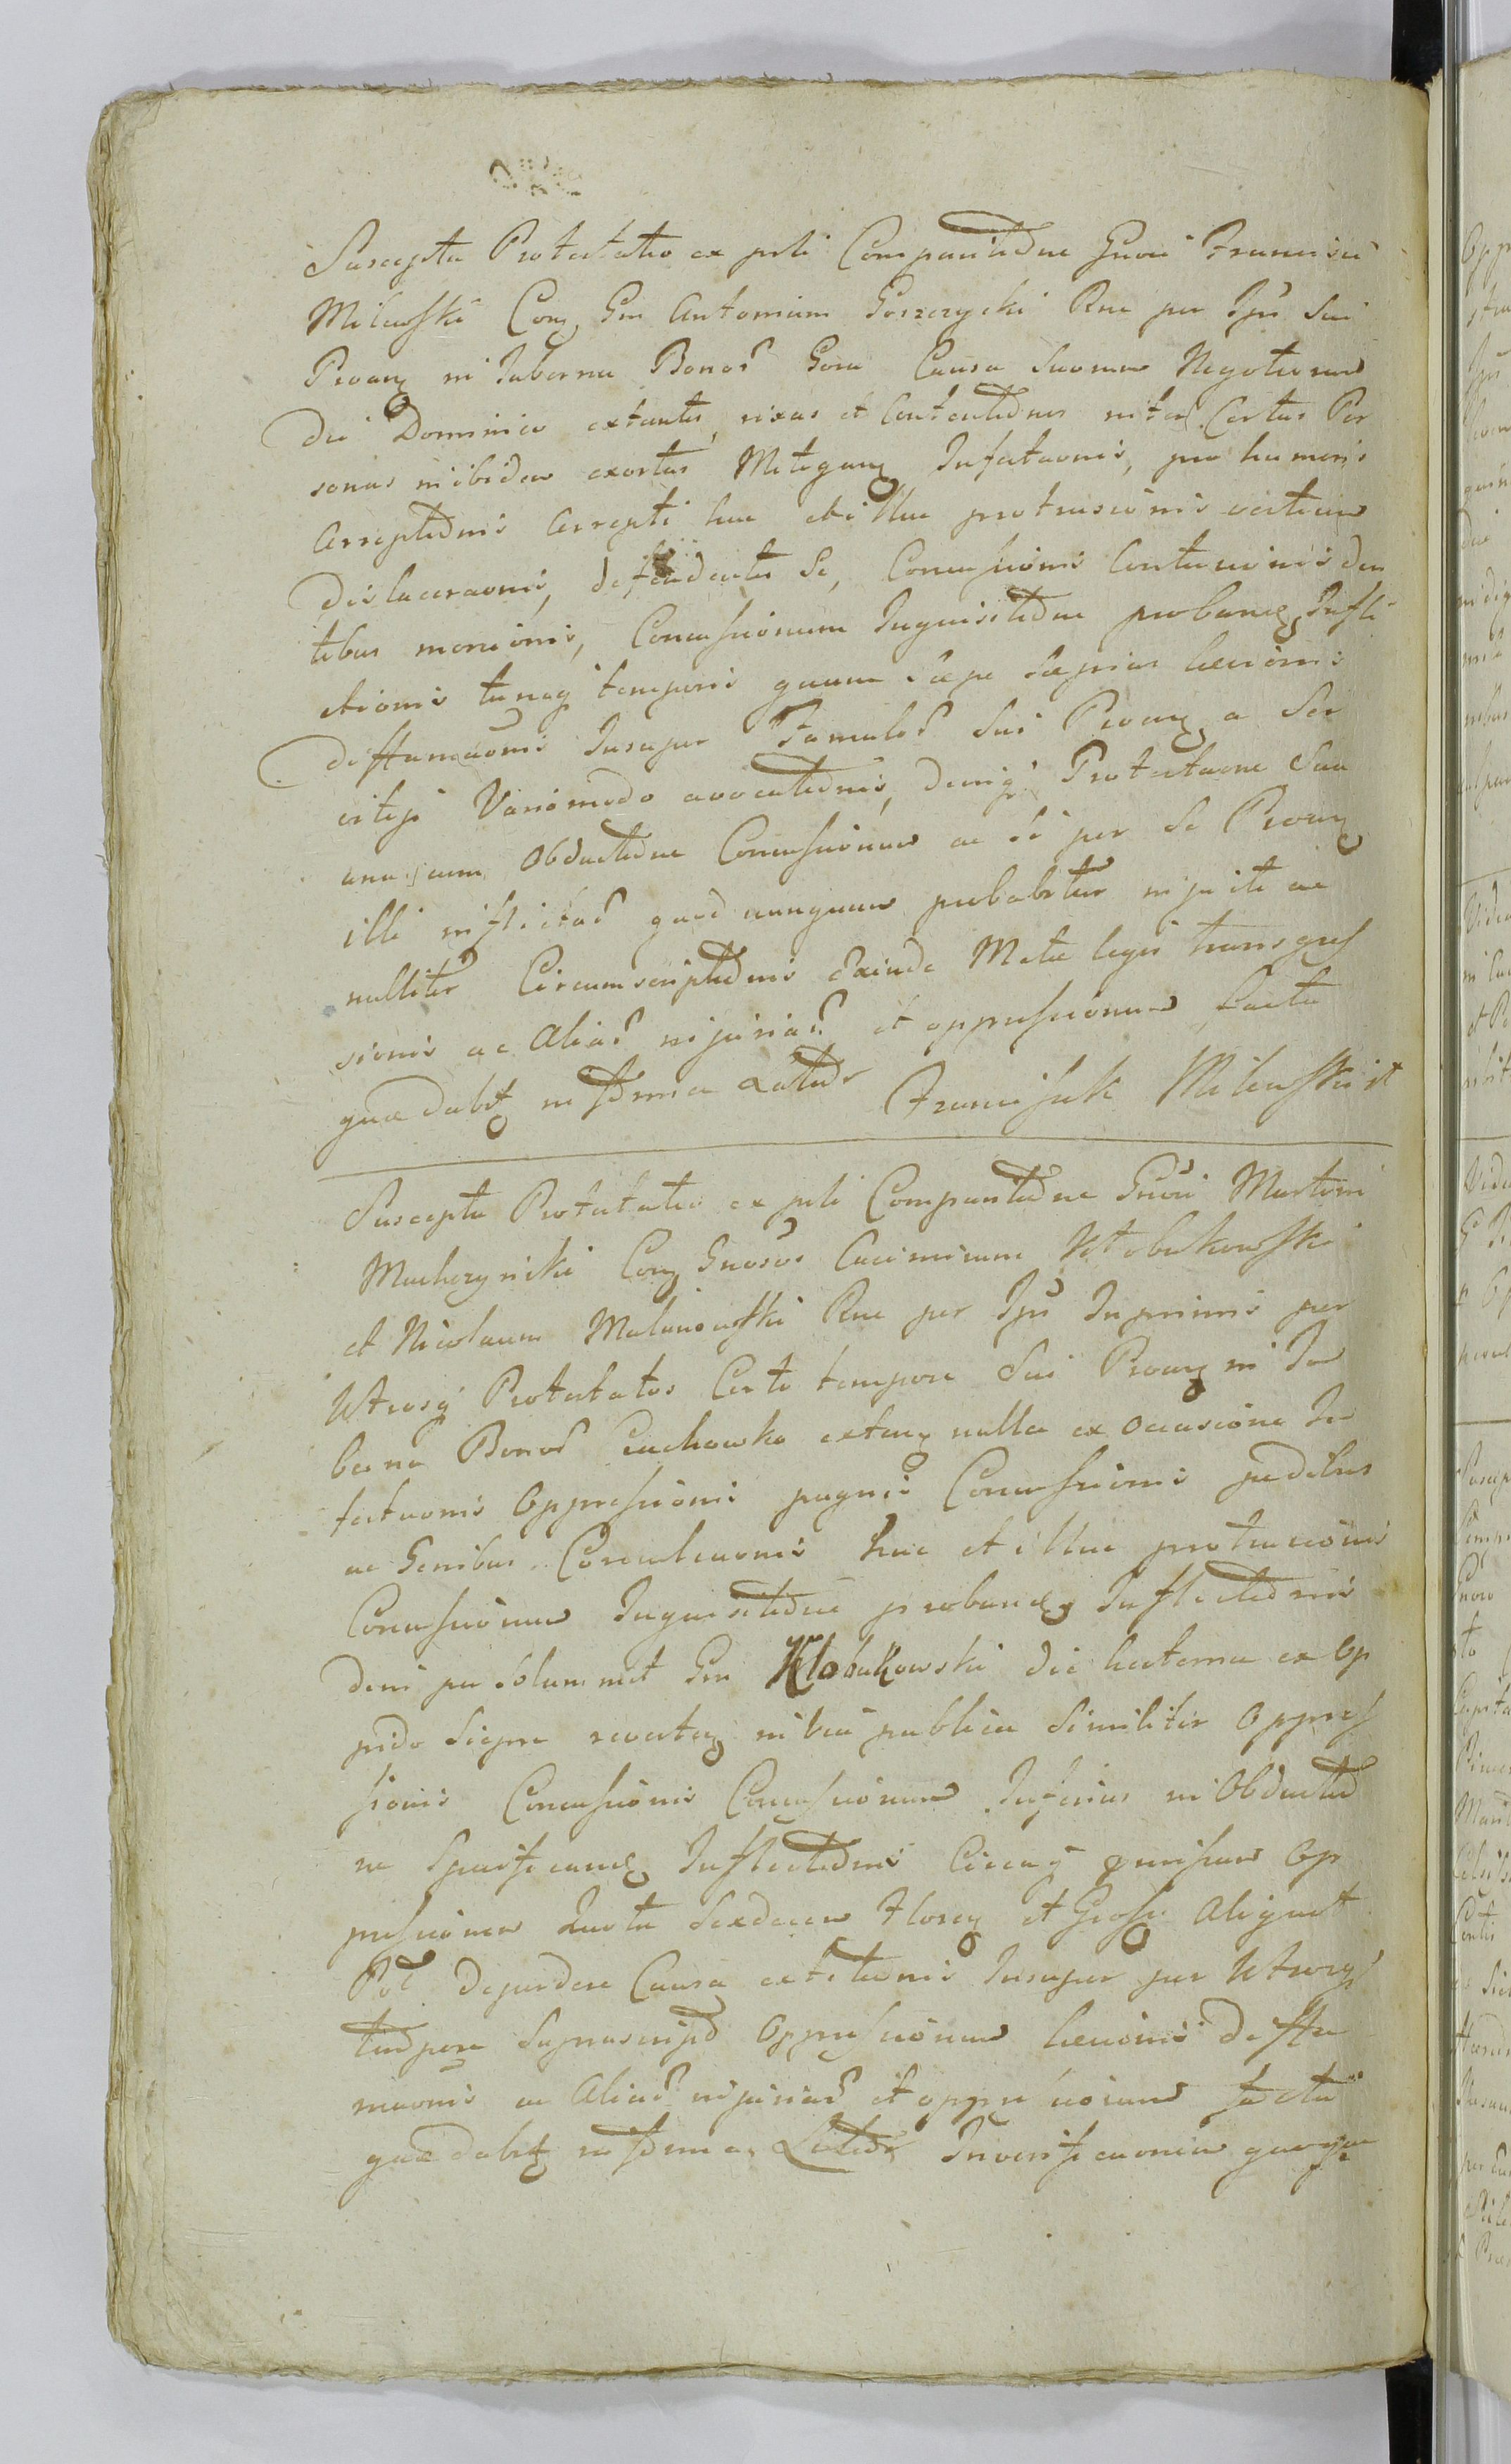 Suscepta Protestatio ex prsti Comparitione Gnosi Francisci
Milewski Con Gm Antonium Goszczycki Rne per Ips Sui
Proan in Taberna Bonor Gora Causa Suorum Negotiorum
die Dominico extantis, rixas et Contentiones inter Certas Per
sonas inibidem exortas Mitigan Infestaonis, pro humeris
Arreptionis Arrepti huc et illuc protrusionis vestium
dislaceraonis, defendentis Se, Concussionis Contusionis den
tibus morsionis, Concussionum Inquisitione proban Infli
ctionis tuncq temporis quam saepe saepius laesionis
diffamaonis Insuper Famulor Sui Proan a Ser
vitijs Variomodo avocationis, deniq Protestaone Sua
una cum Obductione Concussionum ac si per Se Proan
illi inflictar quod nunquam probabitur injuste ac
nulliter Circumscriptionis exinde Metae legis transgres
sionis ac Aliar injuriar et oppressionum facta
quae dabit in forma Latior Franciszek Milewski
Suscepta Protestatio ex prsti Comparitione Gnosi Martini
Muchczynski Con Gnosos Casimirum Kłobukowski
et Nicolaum Malinowski Rne per Ips Inprimis per
Utrosq Protestatos Certo tempore Sui Proan in Ta
berna Bonor extan nulla ex occasione In
festaonis Oppressionis pugnis Concussionis pedibus
ac Genibus Conculcaonis huc et illuc protrusionis
Concussionum Inquisitione proban Inflictionis
dein per solummet Gm Kłobukowski die hesterna ex Op
pido reverten in via publica Similiter Oppres
sionis Concussionis Concussionum Inferius in Obductio
ne Specifican Inflictionis Circaq praemissam Op
pressionem Quota Sexdecem Floren et Grossi Aliquot
Pol deperdere Causa extitionis Insuper per Utrosq
tempore Suprascrip Oppressionum laesionis diffa
maonis ac Aliar injuriar et oppressionum facta
quae dabit in forma Latior In verificaonem quoque